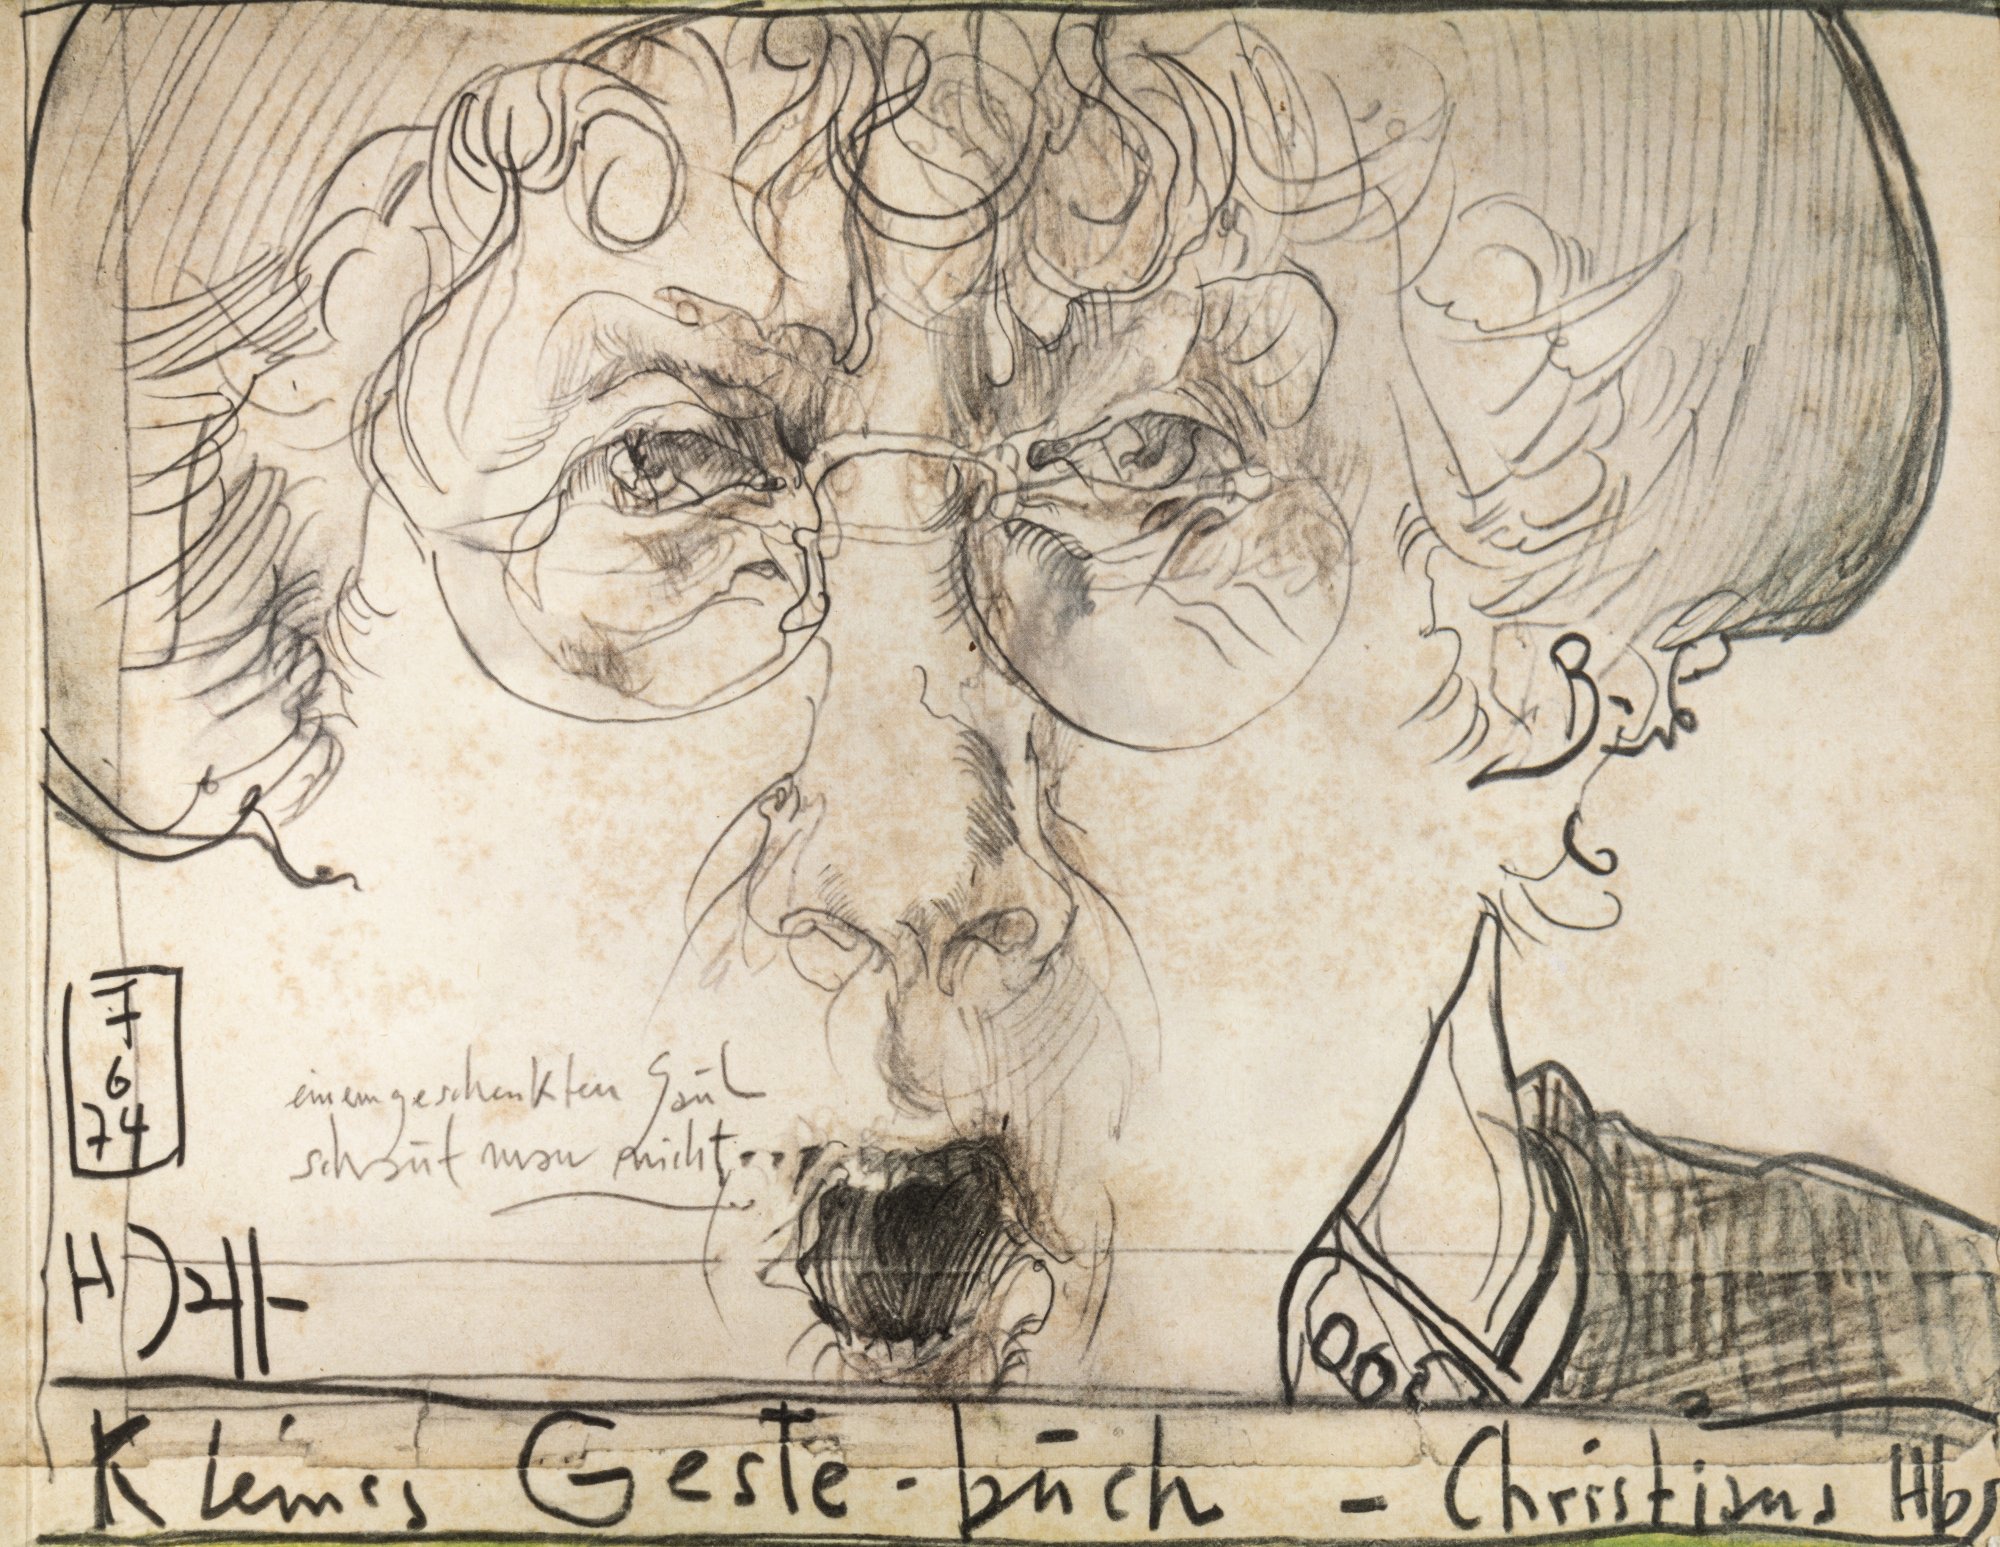 I
6
74
einem geschenkten Gaul
schaut man nicht...
Kleines Geste-buch - Christians